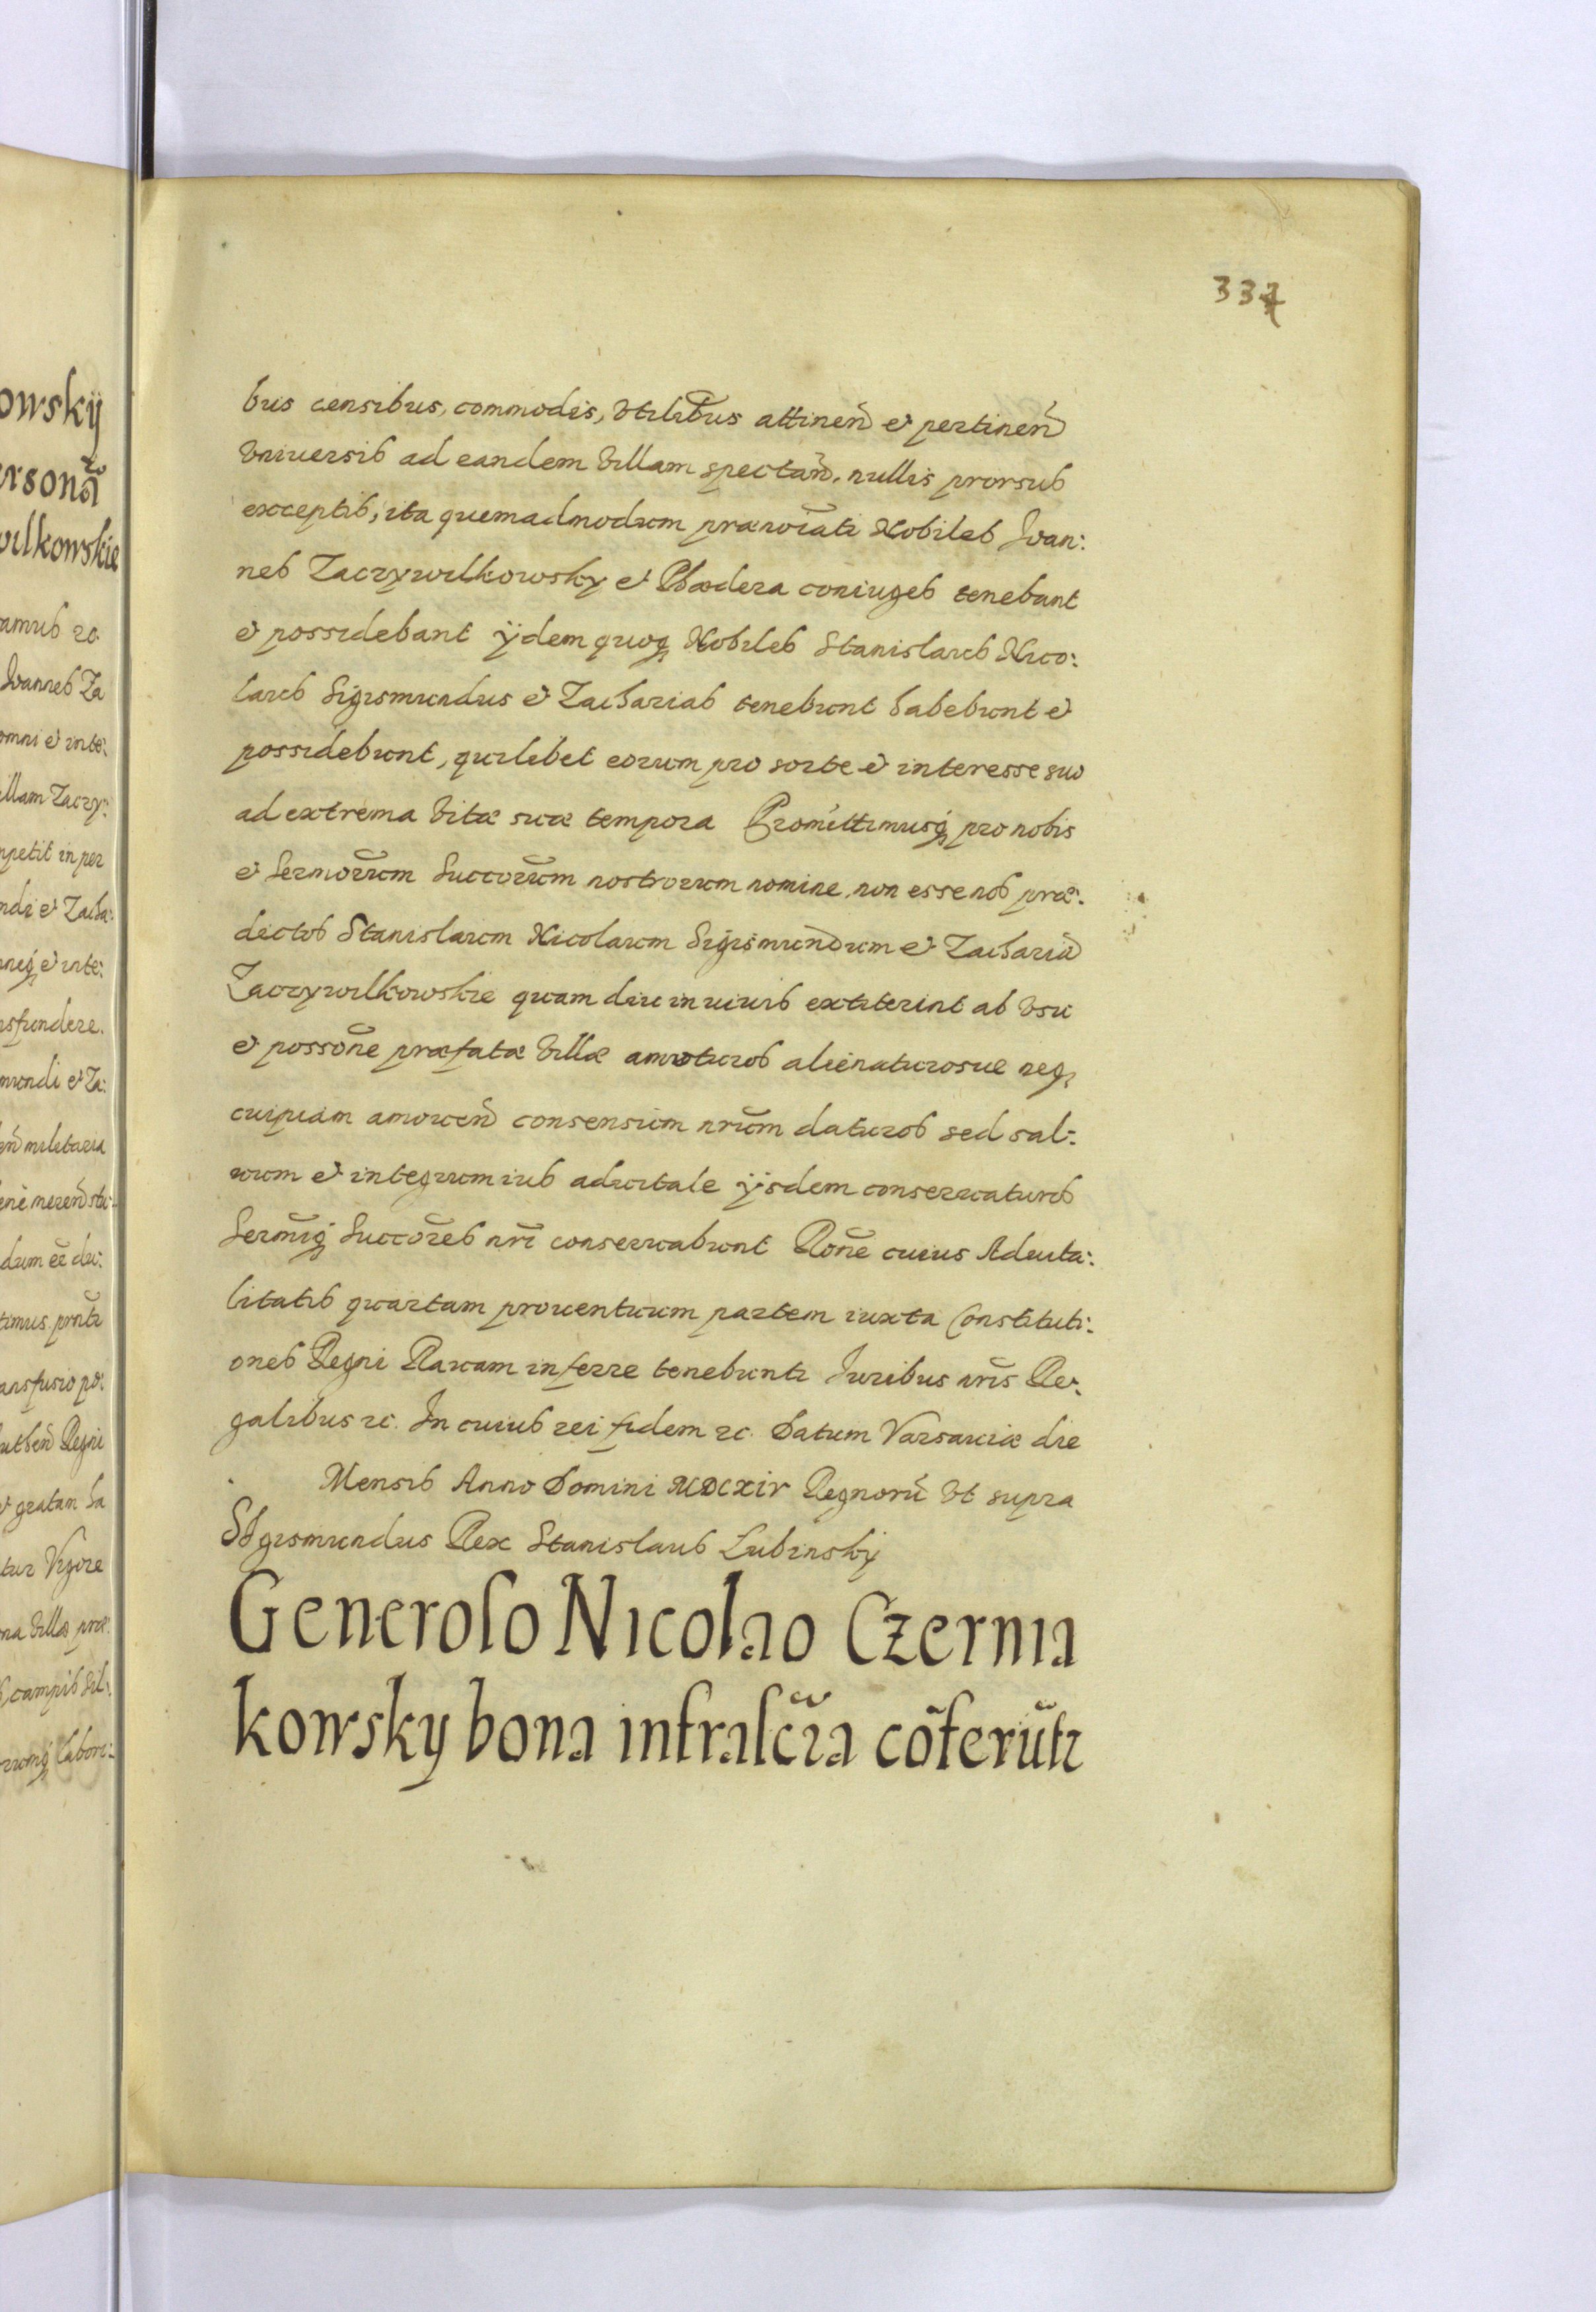 owskÿ
rsonã
wilkowskie
amus ꝛc
Joannes Za
omni et inte:
illam Zaczy:
mpetit in per
ndi et Zacha:
neq₃ et inte:
nsfundere.
mundi et Za:
militaria
dum eẽ du:
timus pñtr
ansfusio po:
Regni
et gratam ha
tur Vigore
na Villæ præ:
campis Sil:
labori:
337
bus censibus, commodis, Vtilit̃bus attineñ et pertineñ
Vniuersis ad eandem Villam spectañ. nullis prorsus
exceptis, ita quemadmodum prænoĩati Nobiles Joan:
nes Zaczywilkowsky et Phædera coniuges tenebant
et possidebant ÿdem quoq₃ Nobiles Stanislaus Nico:
laus Sigismundus et Zacharias tenebunt habebunt et
possidebunt, quilibet eorum pro sorte et interesse suo
ad extrema Vitæ suæ tempora Promittimusq₃ pro nobis
et Sermorũm Succorũm nostrorum nomine, non esse nos præ:
dictos Stanislaum Nicolaum Sigismundum et Zachariã
Zaczywilkowskie quam diu in uiuis extiterint ab Vsu
et possoñe præfatæ Villæ amoturos alienaturosue neq₃
cuipiam amoueñ consensum nrũm daturos sed sal:
uum et integrum ius aduitale ÿsdem conseruaturos
Sermiq̃₃ Succoẽs nrĩ conseruabunt Roñe cuius Aduita:
litatis quartam prouentuum partem iuxta Constituti:
ones Regni Rauam inferre tenebuntr Juribus nrĩs Re:
galibus ꝛc. In cuius rei fidem ꝛc. Datum Varsauiæ die
Mensis Anno Domini MDCXIV Regnorũ Vt supra
Sigismundus Rex Stanislaus Lubinsky
Generoso Nicolao Czernia
kowsky bona infrascr̃ia cõferũtr